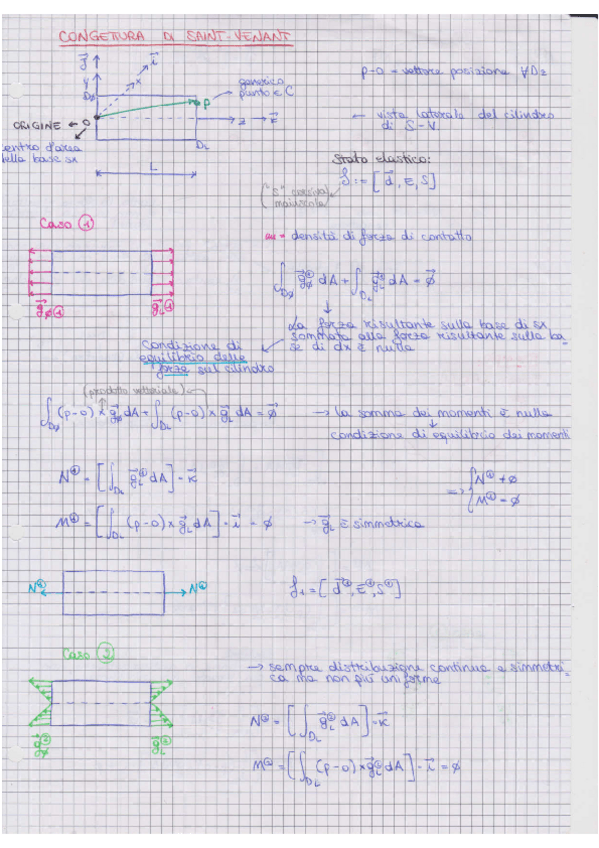 CONGETTURA DI SAINT-VENANT
p-o = vettore posizione ∀D_z
generico
punto ∈ C
P
x
y
z
O
D_ø
D_L
L
ORIGINE
entro d'area
della base sx
← vista laterale del cilindro
di S-V
Stato elastico:
("S" corsiva
maiuscola)
S := [d⃗, E, S]
Caso ①
= densità di forza di contatto
∫_Dø g⃗_ø^① dA + ∫_DL g⃗_L^① dA = ø⃗
g⃗_ø^① g⃗_L^①
La forza risultante sulla base di sx
sommata alla forza risultante sulla ba-
se di dx è nulla
Condizione di
equilibrio delle
forze sul cilindro
(prodotto vettoriale)
∫_Dø (p-o) × g⃗_ø dA + ∫_DL (p-o) × g⃗_L dA = ø⃗ → la somma dei momenti è nulla
condizione di equilibrio dei momenti
N^① = [∫_DL g⃗_L^① dA] · k⃗
=> { N^① ≠ ø
M^① = ø
M^① = [∫_DL (p-o) × g⃗_L dA] · i⃗ = ø → g⃗_L è simmetrica
N^① N^①
S_1 = [d⃗^①, E^①, S^①]
Caso ②
→ sempre distribuzione continua e simmetri-
ca ma non più uniforme
g⃗_ø^② g⃗_L^②
N^② = [∫_DL g⃗_L^② dA] · k⃗
M^② = [∫_DL (p-o) × g⃗_L^② dA] · i⃗ = ø